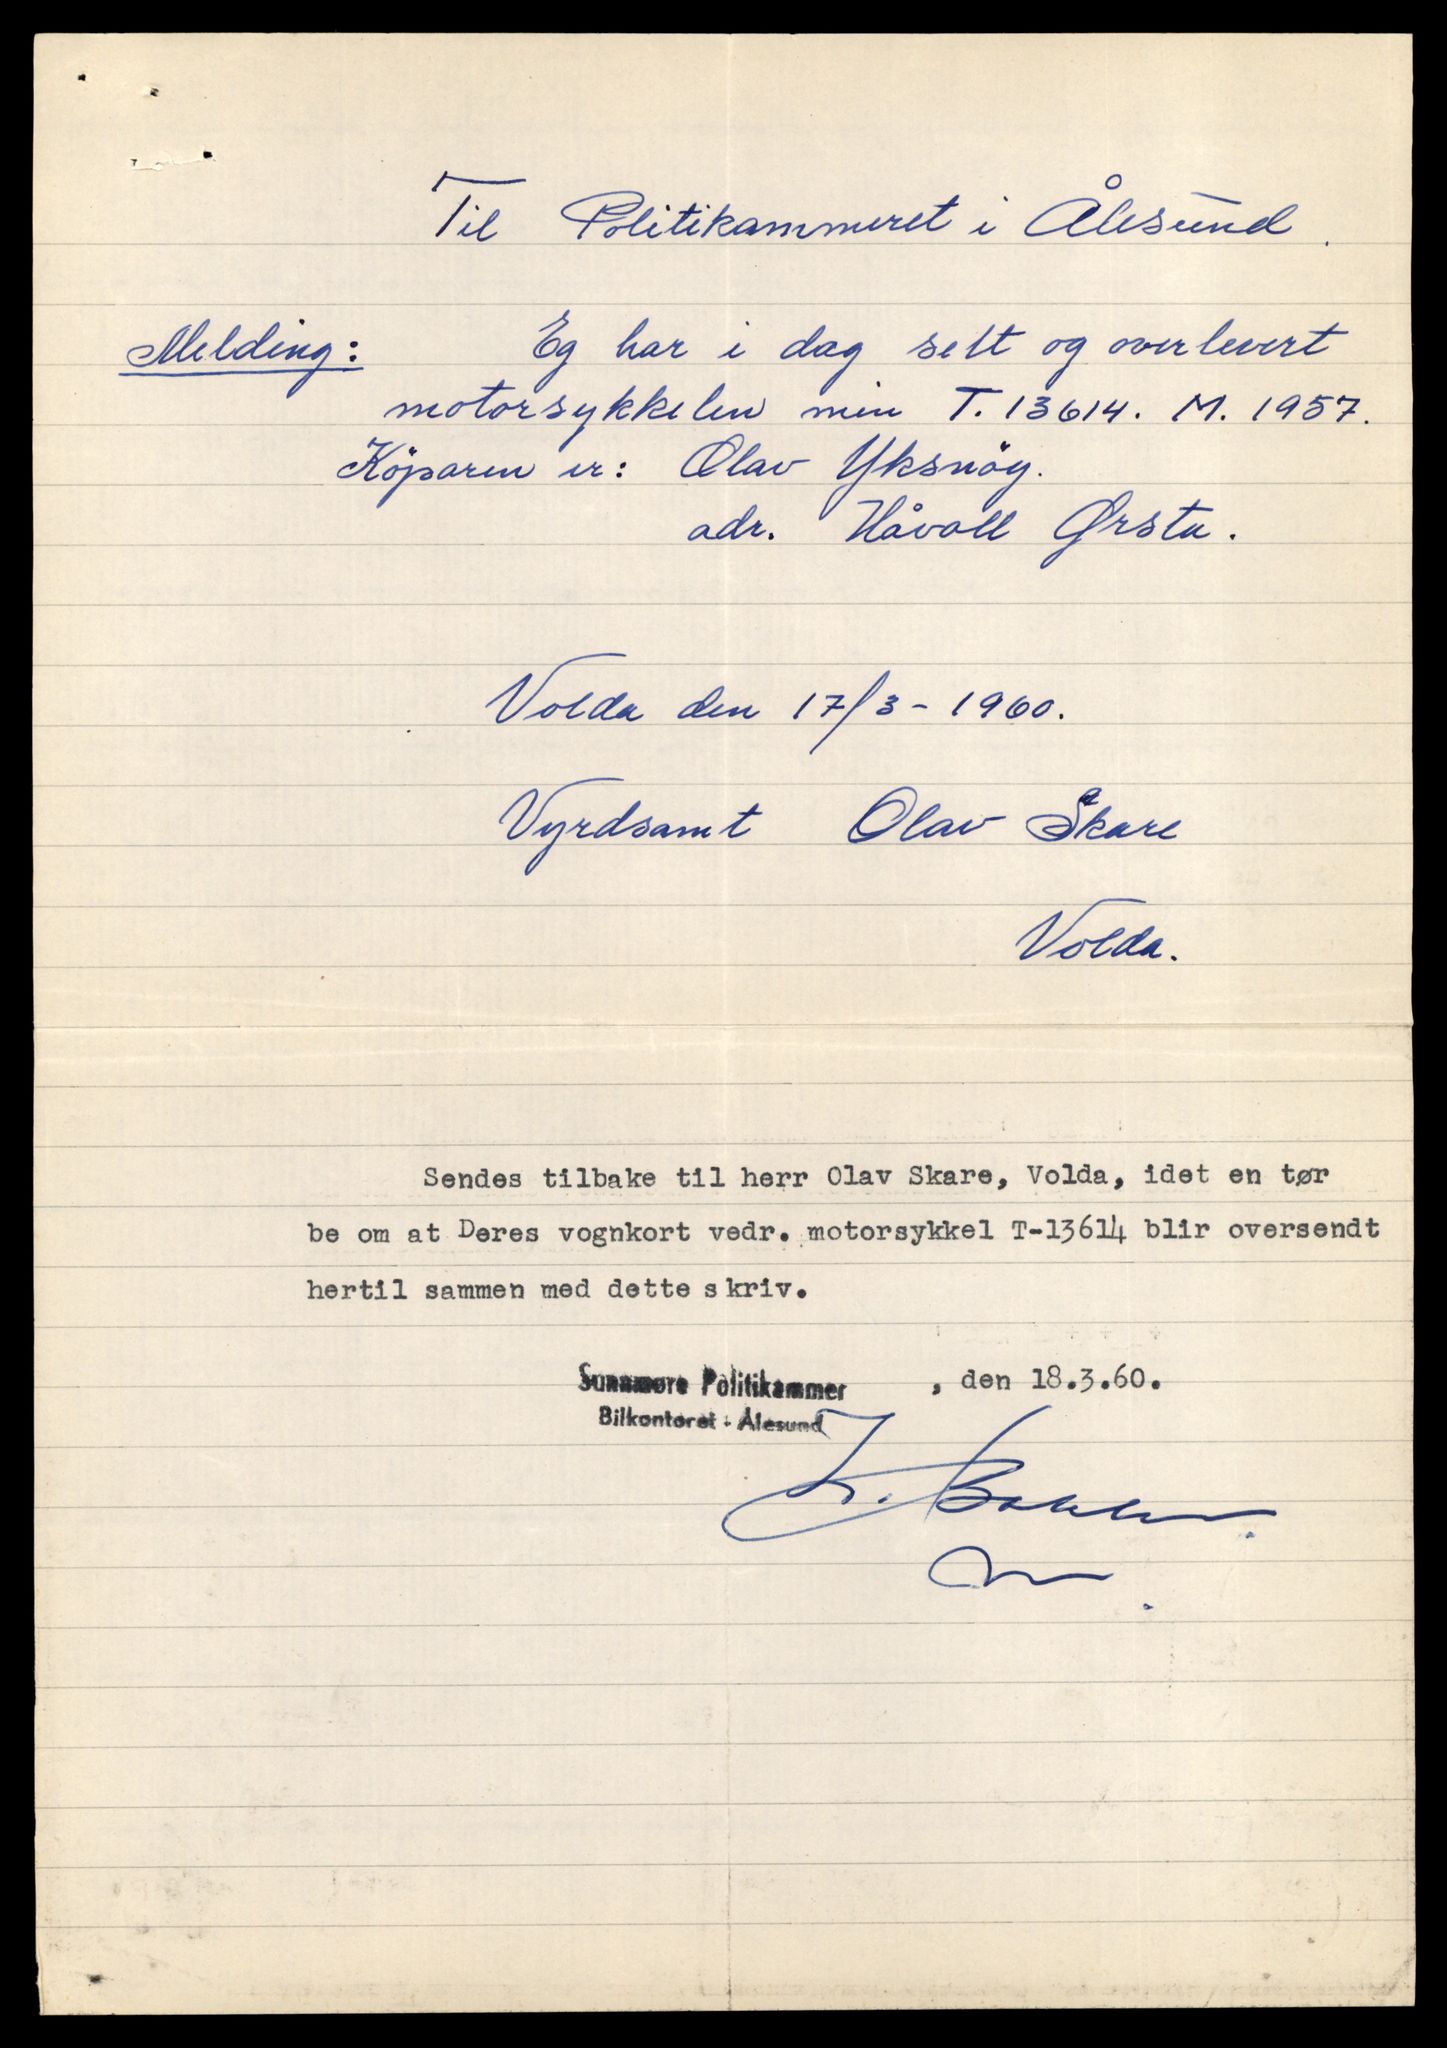 Til Politikammeret i Ålesund.
Melding: Eg har i dag selt og overlevert
motorsykkelen min T. 13614. M. 1957.
Köparen er: Olav Yksnöy.
adr. Håvoll Ørsta.
Volda den 17/3 - 1960.
Vyrdsamt Olav Skare
Volda.
Sendes tilbake til herr Olav Skare, Volda, idet en tør
be om at Deres vognkort vedr. motorsykkel T-13614 blir oversendt
hertil sammen med dette skriv.
Sunnmøre Politikammer , den 18.3.60.
Bilkontoret - Ålesund